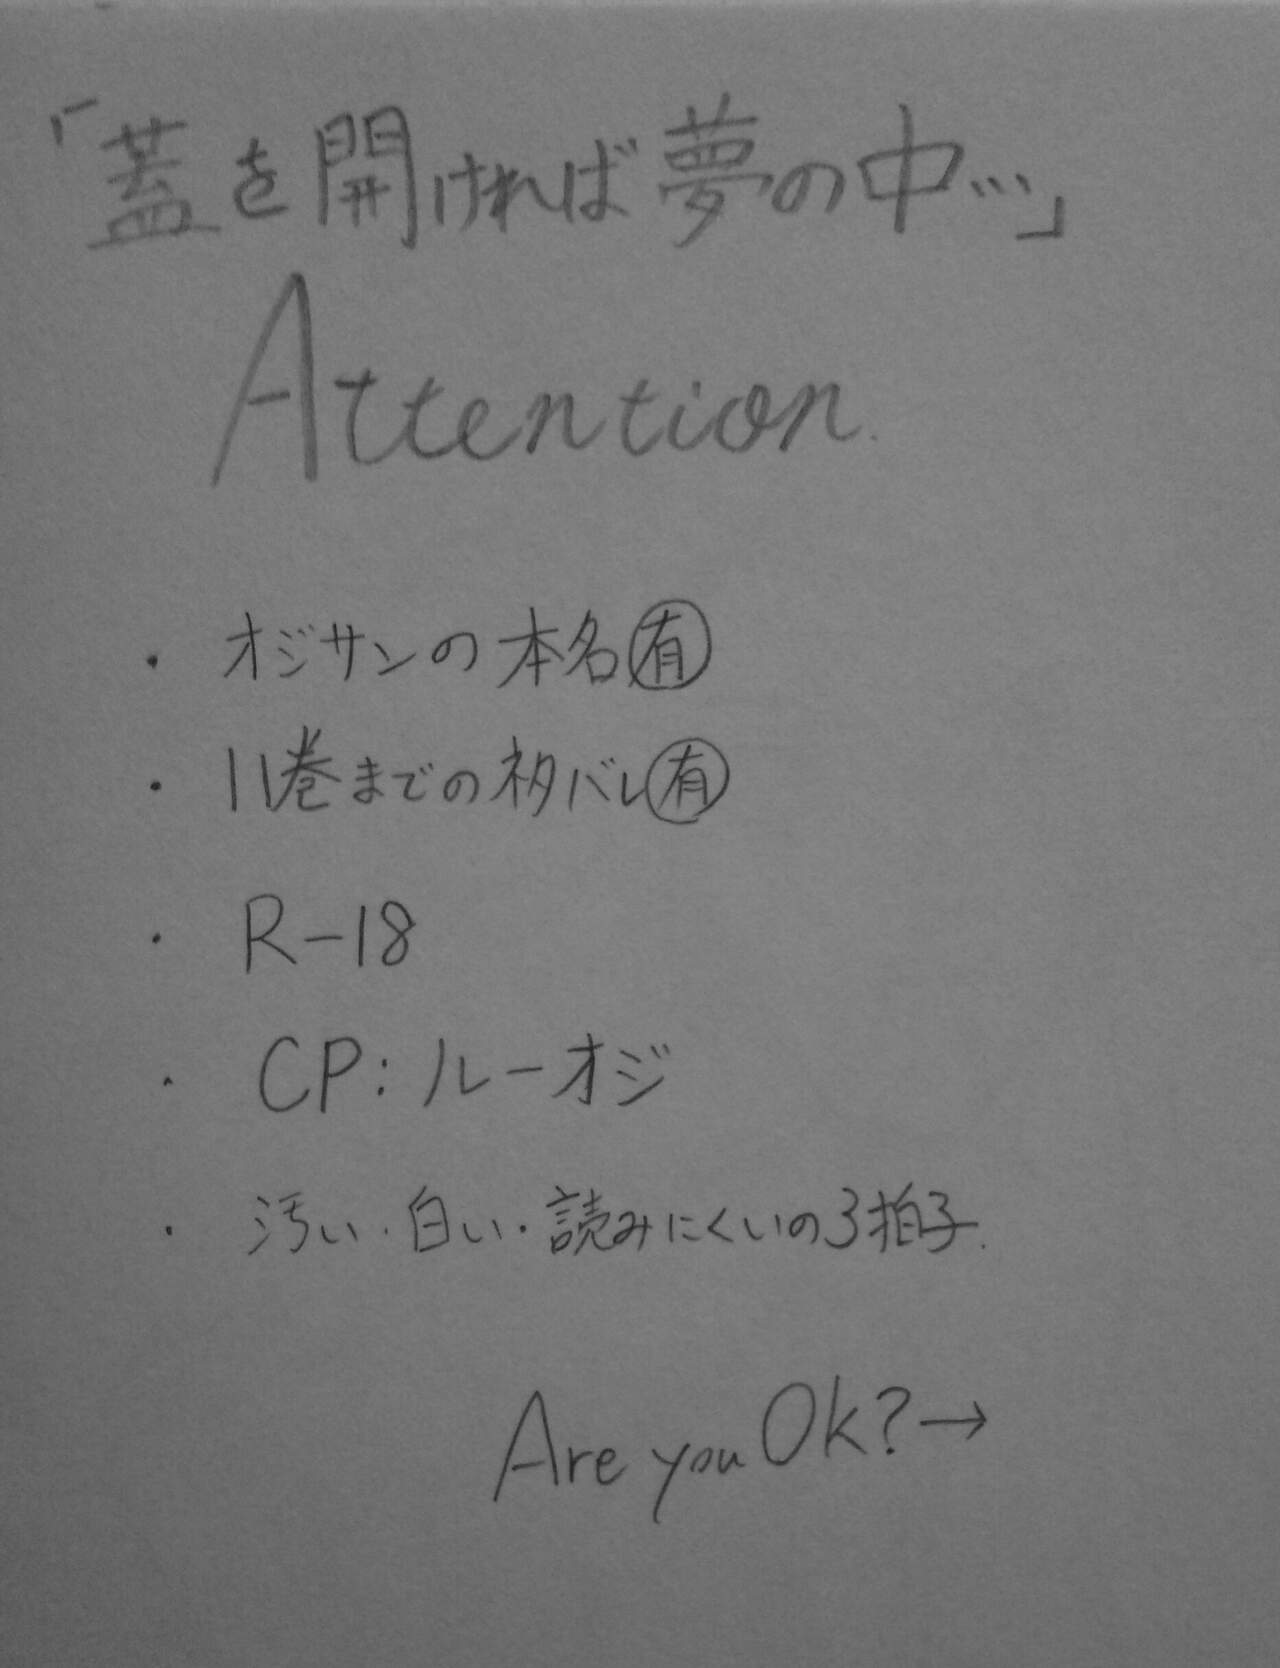 「蓋を開ければ夢の中…」
Attention.
・ オジサンの本名㊒
・ 11巻までのネタバレ㊒
・ R-18
・ CP:ルーオジ
・ 汚い・白い・読みにくいの3拍子.
Are you Ok?→